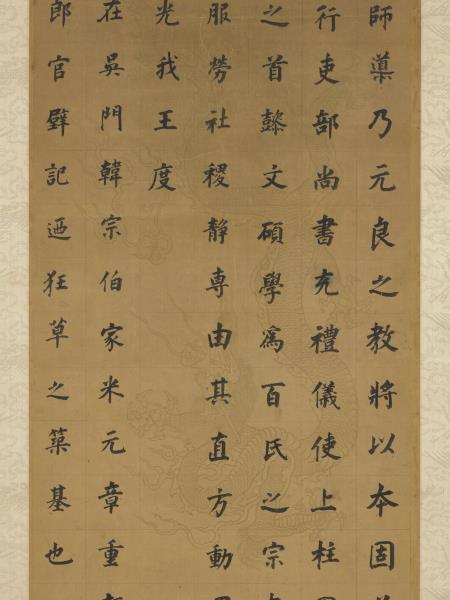 師導乃元良之教將以本固
行吏部尚書充禮儀使上柱
之首懿文碩學為百氏之宗
服勞社稷靜專由其直方動
光我王度
在吳門韓宗伯家米元章重
郎官壁記迺狂草之築基也